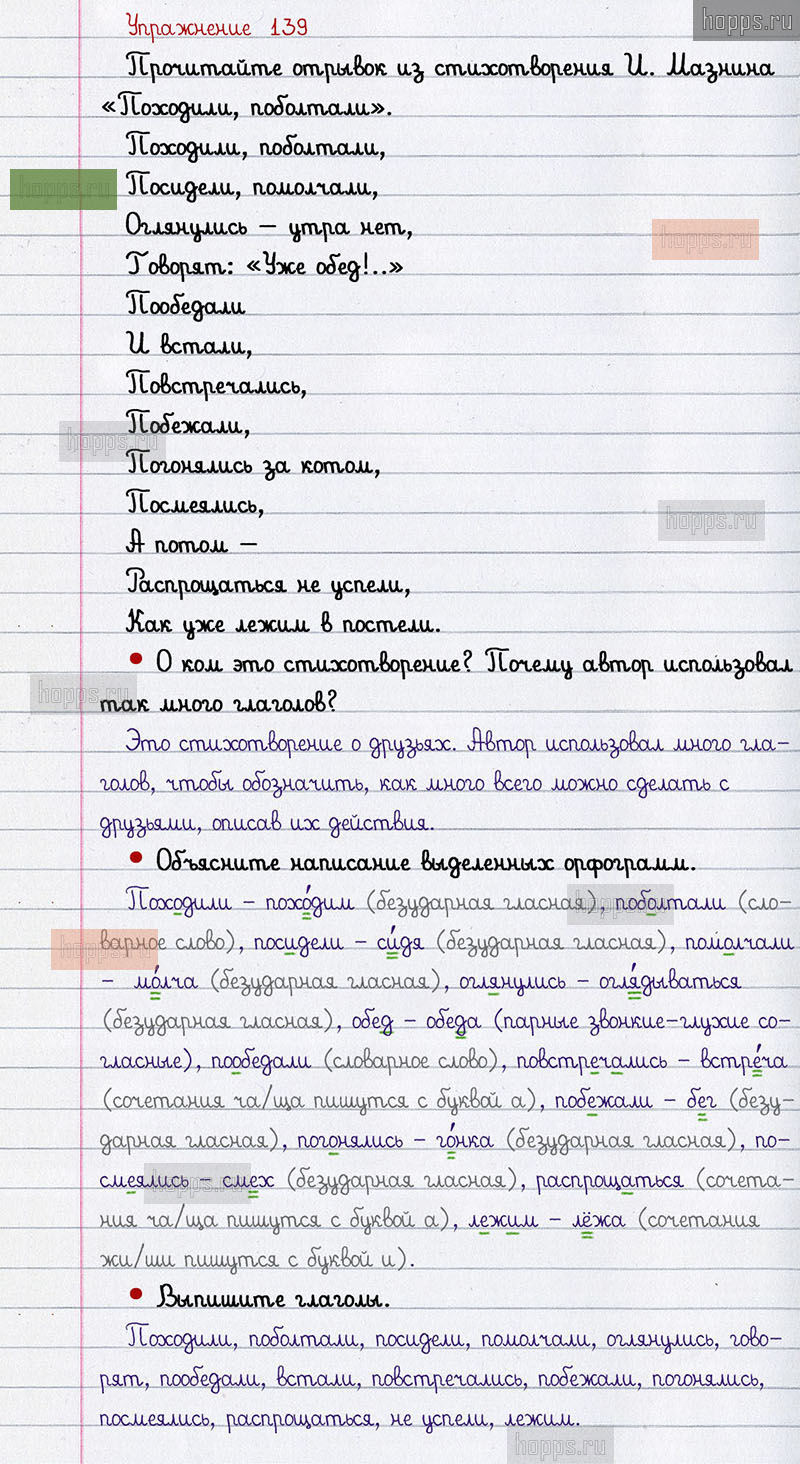 Упражнение 139
hopps.ru
Прочитайте отрывок из стихотворения И. Мазнина
«Походили, поболтали».
Походили, поболтали,
hopps.ru
Посидели, помолчали,
Оглянулись – утра нет,
hopps.ru
Говорят: «Уже обед!..»
Пообедали
И встали,
Повстречались,
Побежали,
hopps.ru
Погонялись за котом,
Посмеялись,
hopps.ru
А потом –
Распрощаться не успели,
Как уже лежим в постели.
• О ком это стихотворение? Почему автор использовал
hopps.ru
так много глаголов?
Это стихотворение о друзьях. Автор использовал много гла-
голов, чтобы обозначить, как много всего можно сделать с
друзьями, описав их действия.
• Объясните написание выделенных орфограмм.
Походили – похо́дим (безударная гласная), поболтали (сло-
hopps.ru
варное слово), посидели – си́дя (безударная гласная), помолчали
hopps.ru
– мо́лча (безударная гласная), оглянулись – огля́дываться
(безударная гласная), обед – обеда (парные звонкие-глухие со-
гласные), пообедали (словарное слово), повстречались – встре́ча
(сочетания ча/ща пишутся с буквой а), побежали – бег (безу-
дарная гласная), погонялись – го́нка (безударная гласная), по-
смеялись – смех (безударная гласная), распрощаться (сочета-
hopps.ru
ния ча/ща пишутся с буквой а), лежим – лёжа (сочетания
жи/ши пишутся с буквой и).
• Выпишите глаголы.
Походили, поболтали, посидели, помолчали, оглянулись, гово-
рят, пообедали, встали, повстречались, побежали, погонялись,
посмеялись, распрощаться, не успели, лежим.
hopps.ru